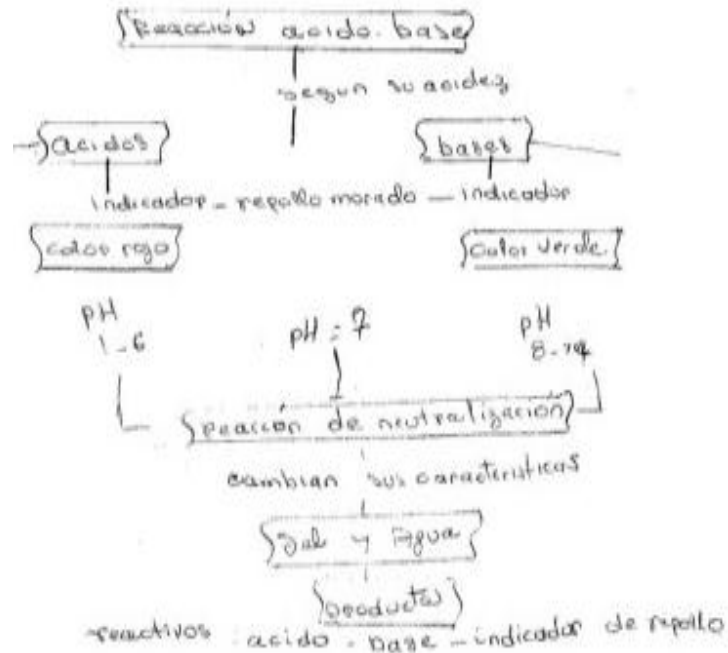 Reacción acido-base
segun su acidez
acidos bases
indicador - repollo morado - indicador
color rojo color verde
pH pH = 7 pH
1-6 8-14
reacción de neutralización
cambian sus caracteristicas
Sal y Agua
productos
reactivos acido - base - indicador de repollo